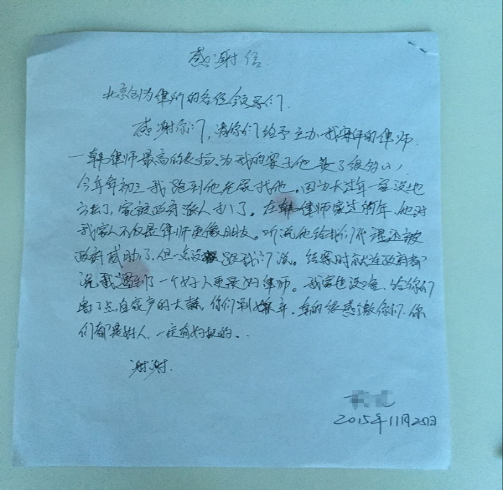 感谢信
北京创为律所的各位领导们
感谢你们，请你们给予主办我案件的律师
一韩律师最高的表扬，为我的案子他费了很多心，
今年年初三我跑到他在家找他。因为大过年一家没地
方去了，家被政府派人扒了。在韩律师家过的年，他对
我家人不仅是律师更像朋友。听说他给我们代理还被
政府威胁了，但一点没跟我们说。结案时就连政府都
说我遇到了一个好人更是好律师。我家也没啥，给你们
自家产的大
你们都是好人，一定有好报的。
谢谢
2015年11月25日